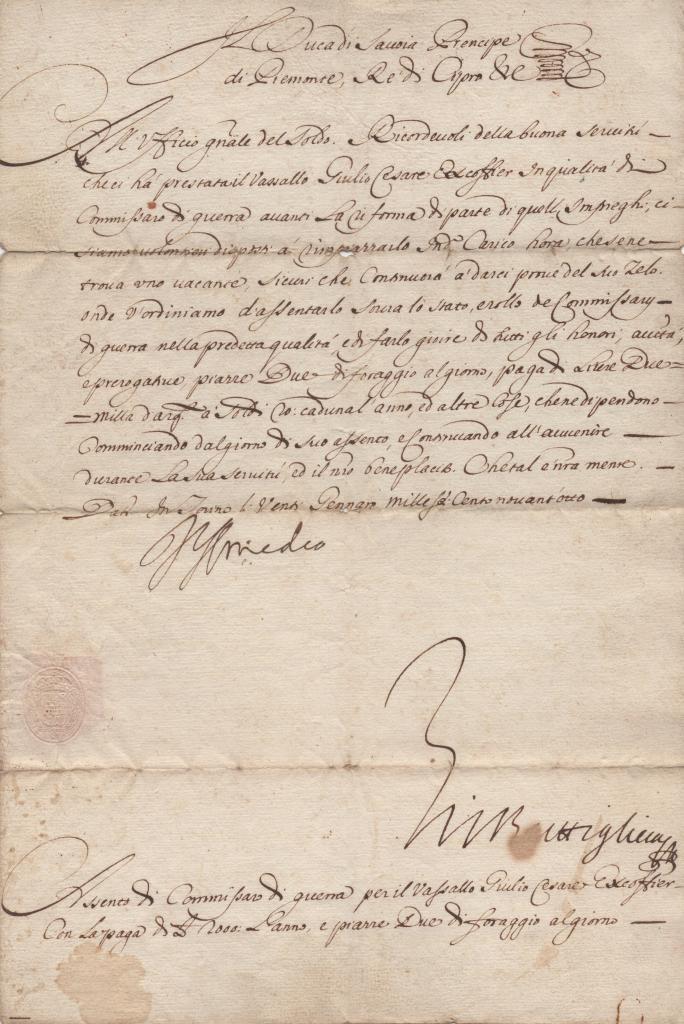 Il Duca di Savoia Prencipe
di Piemonte, Re di Cipro &c
All' Ufficio gnãle del Soldo. Ricordevoli della buona servitù
che ci hà prestata il Vassallo Giulio Cesare Excoffier In qualità di
Commissaro di guerra avanti La riforma di parte di quelli Impieghi, ci
siamo disposti à rimpiazzarlo Ind.º Carico hora, che se ne
trova uno vacante, sicuri che Continuerà à darci prove del suo Zelo.
onde V'ordiniamo d'assentarlo Sovra lo stato, e rollo de Commissarij
di guerra nella predetta qualità, e di farlo gioire di tutti gli honori, auttà,
e prerogative, piazze Due di foraggio al giorno, paga di Livre Due
milla d'arg.º à Soldi 20: cadun al anno, ed altre Cose, che ne dipendono
Comminciando dal giorno di suo assento, e Continuando all'avvenire
durante La sua servitù, ed il nrõ beneplacito. Che tal è nrã mente.
Dat. In Torino li Venti Gennaro mille se Cento novant'otto
V Amedeo
Assento di Commissaro di guerra per il Vassallo Giulio Cesare Excoffier
Con La paga di # 2000: L'anno, e piazze Due di foraggio al giorno